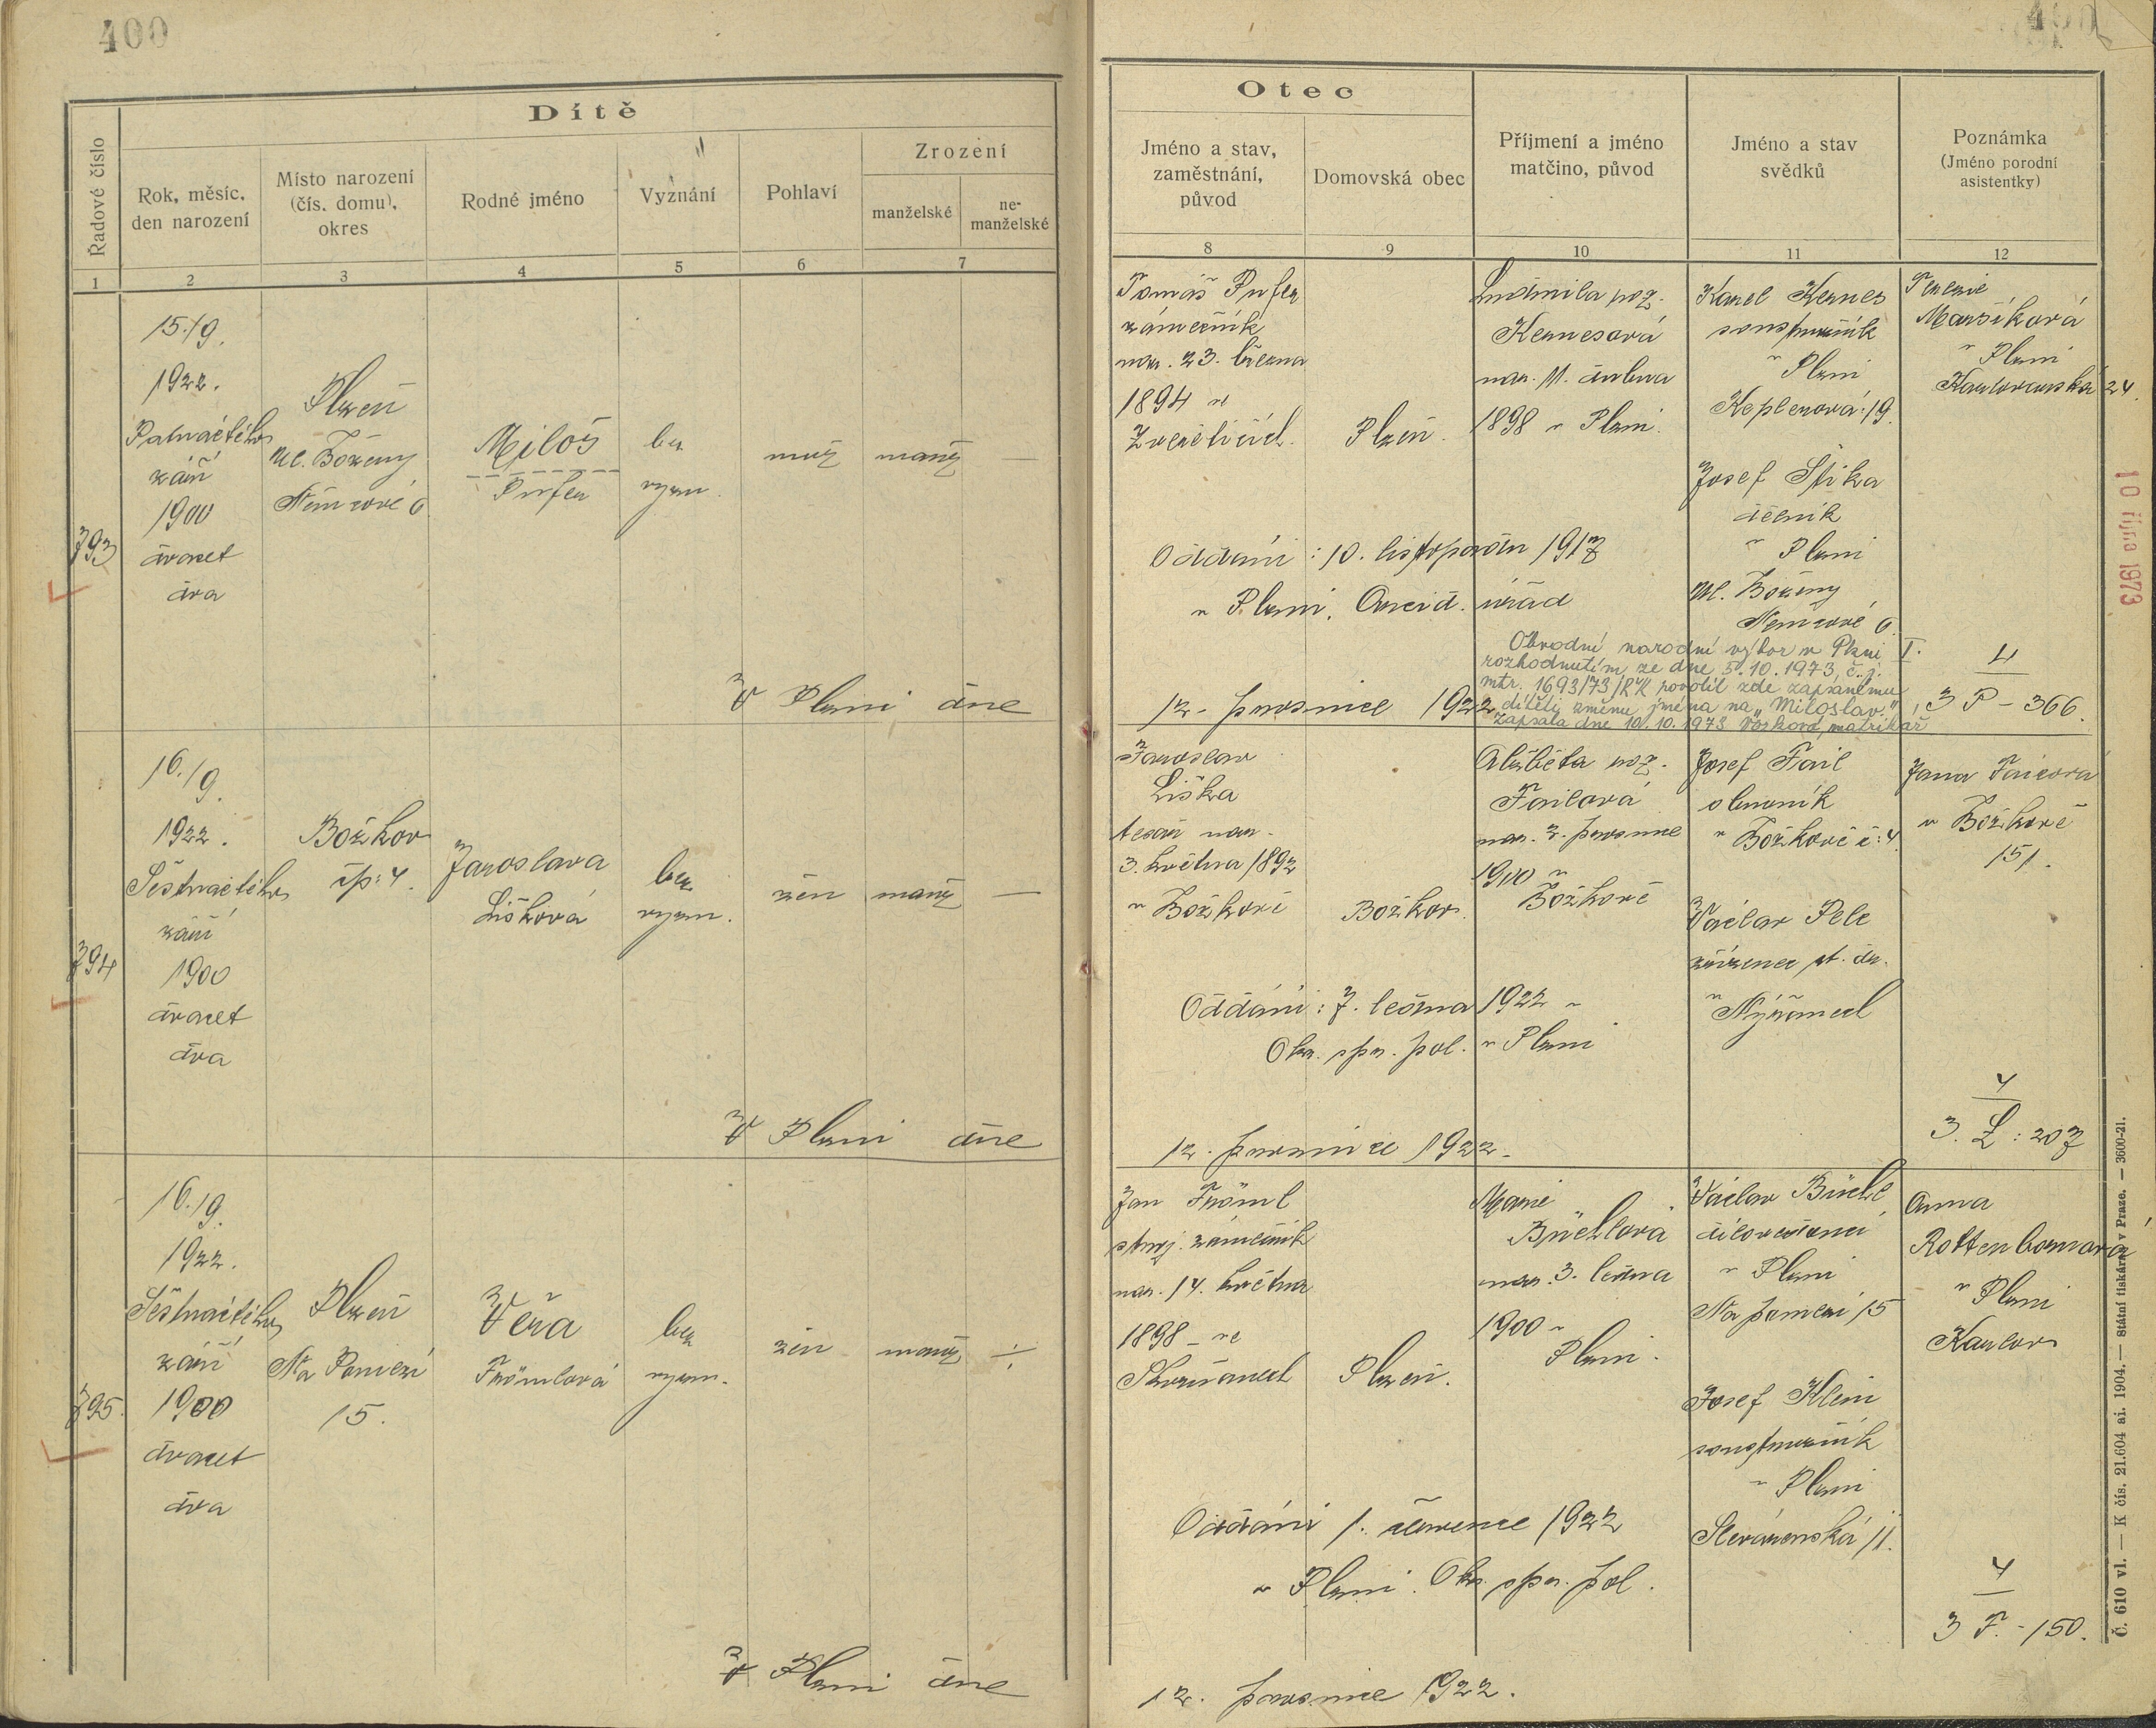 400
Dítě
Řadové číslo
Rok, měsíc, den narození
Místo narození (čís. domu), okres
Rodné jméno
Vyznání
Pohlaví
Zrození
manželské
ne-manželské
1 2 3 4 5 6 7
Otec
Jméno a stav, zaměstnání, původ
Domovská obec
Příjmení a jméno matčino, původ
Jméno a stav svědků
Poznámka
(Jméno porodní asistentky)
8 9 10 11 12
793
15./9.
1922.
Patnáctého
září
1900
dvacet
dva
Plzeň
Ul. Boženy
Němcové 6
Miloš
bez
vyzn.
muž
manž
—
Tomáš
zámečník
nar. 23. března
1894 ve
Plzeň.
Ludmila roz.
Kernesová
nar. 11. dubna
1898 v Plzni.
Karel Kernes
soustružník
v Plzni
Keplerova: 19.
Josef Šika
dělník
v Plzni
Ul. Boženy
Němcové 6.
Terezie
Maršíková
v Plzni
Karlovarská 24.
Oddáni: 10. listopadu 1917
v Plzni, úřad
Obvodní národní výbor v Plzni I.
rozhodnutím ze dne 5.10.1973, č.j.
mtr. 1693/73/RK povolil zde zapsanému
dítěti změnu jména na „Miloslav."
Zapsala dne 10.10.1973 matrikář
4
3 P - 366.
V Plzni dne
12. prosince 1922
10 října 1973
794
16./9.
1922.
Šestnáctého
září
1900
dvacet
dva
Božkov
čp: 4.
Jaroslava
Lišková
bez
vyzn.
žen
manž
—
Jaroslav
Liška
tesař nar.
3. května 1892
v Božkově
Božkov.
Alžběta roz.
Failová
nar. 2. prosince
1900 v
Božkově
Josef Fail
obuvník
v Božkově č: 4.
Václav Pelc
zřízenec st. dr.
v Nýřanech
Jana
v Božkově
151.
Oddáni: 7. ledna 1922 v
Okr. spr. pol. v Plzni
4
3. L: 207
V Plzni dne
12. prosince 1922.
795.
16./9.
1922.
Šestnáctého
září
1900
dvacet
dva
Plzeň
Na Pomezí
15.
Věra
Frömlová
bez
vyzn.
žen
manž
Jan Fröml
stroj. zámečník
nar. 14. května
1898 ve
Plzeň.
Marie
nar. 3. ledna
1900 v
Plzni.
Václav
v Plzni
Na pomezí 15
Josef Klein
soustružník
v Plzni
Slovanská 11.
Anna
Rottenbornová
v Plzni
Karlov
Oddáni 1. července 1922
v Plzni. Okr. spr. pol.
4
3 F. - 150.
V Plzni dne
12. prosince 1922.
Č. 610 vl. — K čís. 21.604 ai. 1904. — Státní tiskárna v Praze. — 3600-21.